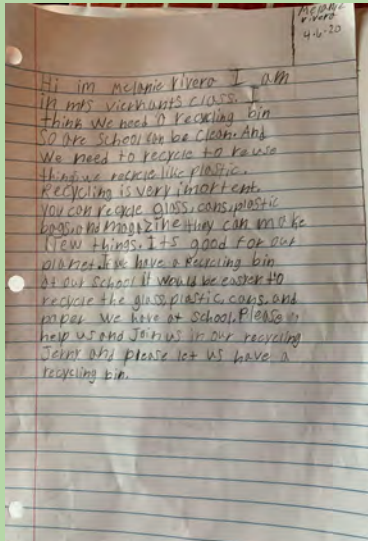 Melanie
rivera
4-6-20
Hi im melanie rivera I am
in mrs vierhants class. I
think we need a recycling bin
so are school can be clean. And
we need to recycle to reuse
things we recycle like plastic.
Recycling is very imortent.
you can recycle glass, cans, plastic
bags, and magazine they can make
New things. Its good for our
planet. If we have a Recycling bin
at our school it would be easter to
recycle the glass, plastic, cans, and
we have at school. Please
help us and Join us in our recycling
Jerny and please let us have a
recycling bin.